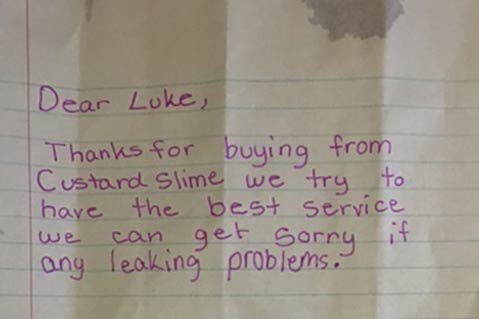 Dear Luke,
Thanks for buying from
Custard Slime we try to
have the best service
we can get sorry if
any leaking problems.